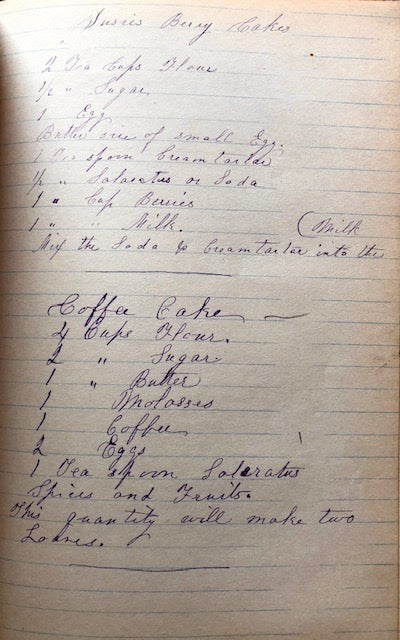 Susies Berry Cakes
2 Tea Cups Flour
1/2 " Sugar
1 Egg
Butter size of small Egg.
1 Tea spoon Creamtartar
1/2 " Salaratus or Soda
1 " Cup Berries
1 " " Milk. (Milk
Mix the Soda & Creamtartar into the
Coffee Cake
4 Cups Flour.
2 " Sugar
1 " Butter
1 Molasses
1 Coffee
2 Eggs
1 Tea spoon Saleratus
Spices and Fruits.
This quantity will make two
Loaves.